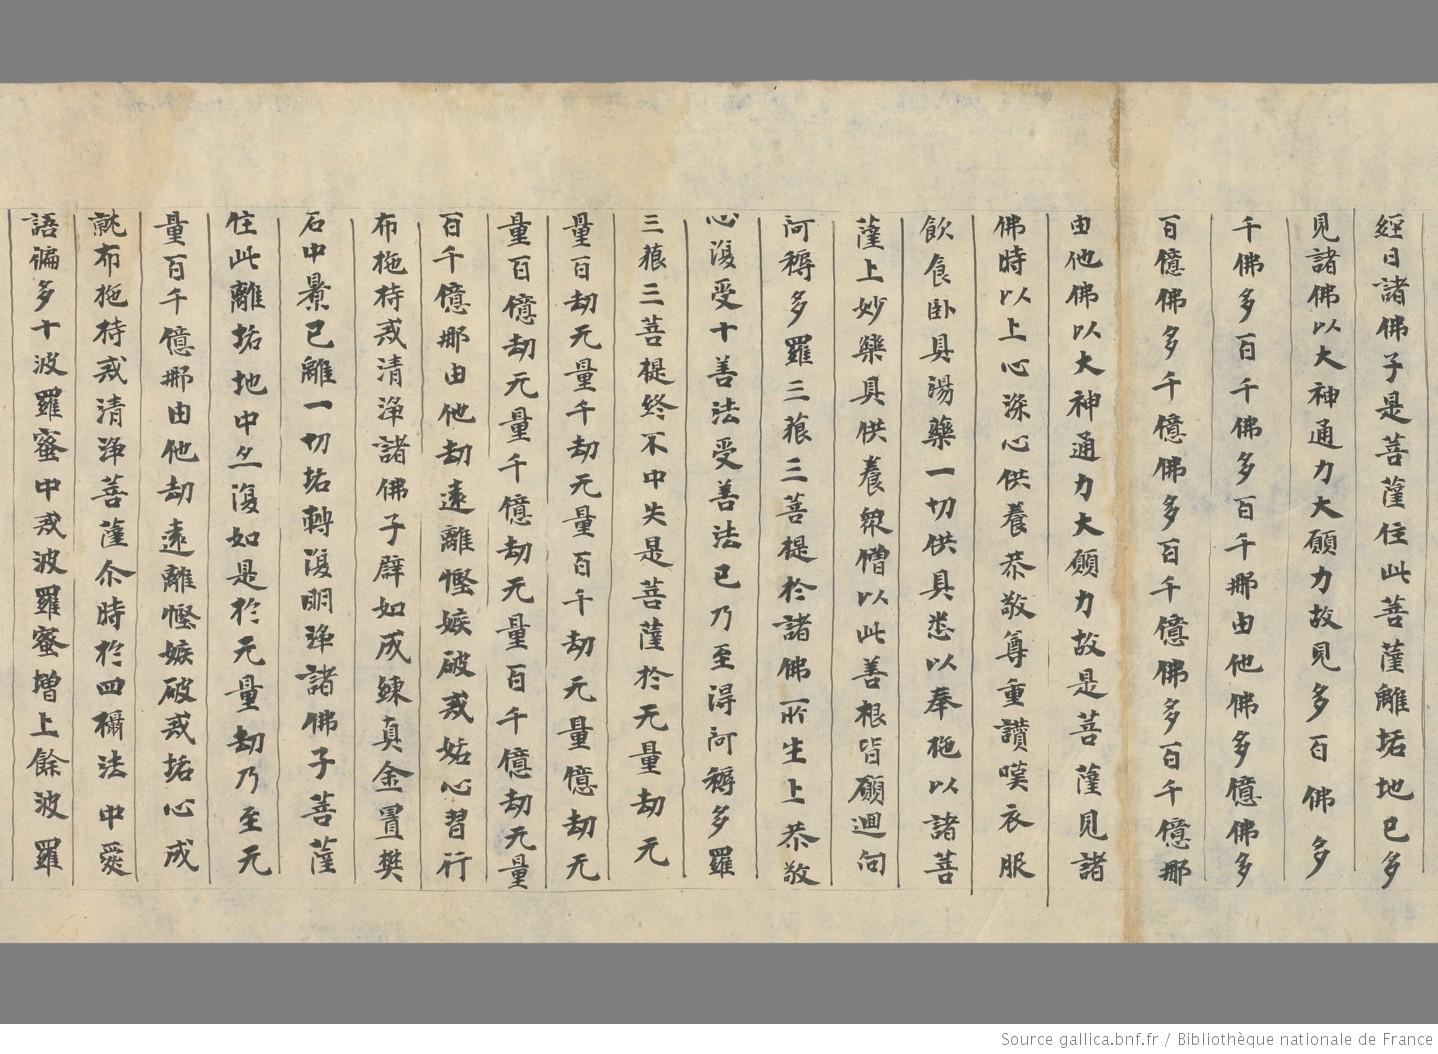 經曰諸佛子是菩薩住此菩薩離垢地已多
見諸佛以大神通力大願力故見多百佛多
千佛多百千佛多百千那由他佛多億佛多
百億佛多千億佛多百千億佛多百千億那
由他佛以大神通力大願力故是菩薩見諸
佛時以上心深心供養恭敬尊重讚嘆衣服
飲食卧具湯藥一切供具悉以奉施以諸菩
薩上妙樂具供養眾僧以此善根皆願迴向
阿耨多羅三藐三菩提於諸佛所生上恭敬
心復受十善法受善法已乃至得阿耨多羅
三藐三菩提終不中失是菩薩於无量劫无
量百劫无量千劫无量百千劫无量億劫无
量百億劫无量千億劫无量百千億劫无量
百千億那由他劫遠離慳嫉破戒妬心習行
布施持戒清淨諸佛子辟如成鍊真金置礬
石中㬌已離一切垢轉復明淨諸佛子菩薩
住此離垢地中亦復如是於无量劫乃至无
量百千億那由他劫遠離慳嫉破戒垢心成
就布施持戒清淨菩薩尒時於四攝法中愛
語徧多十波羅蜜中戒波羅蜜增上餘波羅
Source gallica.bnf.fr / Bibliothèque nationale de France